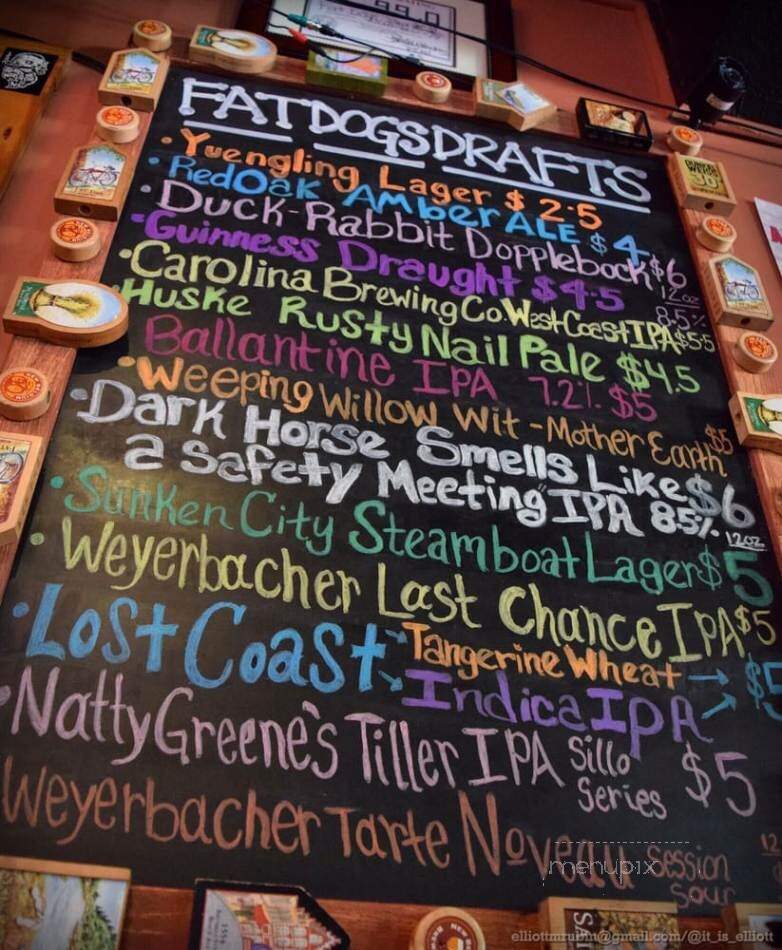 99.0
FATDOGSDRAFTS
·Yuengling Lager $2.5
·RedOak Amber ALE $4
·Duck-Rabbit Dopplebock $6
12oz
8.5%
·Guinness Draught $4.5
·Carolina Brewing Co. West Coast IPA $5.5
·Huske Rusty Nail Pale $4.5
Ballantine IPA 7.2% $5
·Weeping Willow Wit - Mother Earth $5
·Dark Horse Smells Like $6
a Safety Meeting" IPA 8.5% 12oz
·Sunken City Steamboat Lager $5
·Weyerbacher Last Chance IPA $5
·Lost Coast Tangerine Wheat → $5
Indica IPA
·Natty Greene's Tiller IPA Sillo Series $5
Weyerbacher Tarte Noveau Session Sour
12
menupix
elliottmrubin@gmail.com/@it_is_elliott